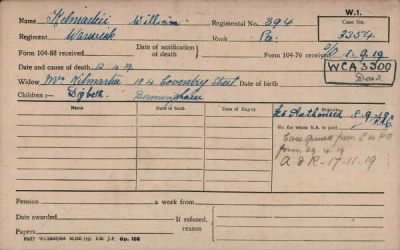 W.1.
Name Kilmartin William Regimental No. 394 Case No.
Regiment Warwick Rank Pte 3354
Form 104-88 received Date of notification of death Form 104-76 received 1.9.19
Date and cause of death 12.4.19 WCA 3300
Widow Mrs Kilmartin 124 Coventry Street Date of birth Dead
Children:— Digbeth Birmingham
Name Date of Birth Date of Expiry Remarks
Authorised 8.9.19
No. for whom S.A. is paid
from
29.4.19
17.11.19
Pension a week from
Date awarded If refused, reason
Papers
Gp. 168